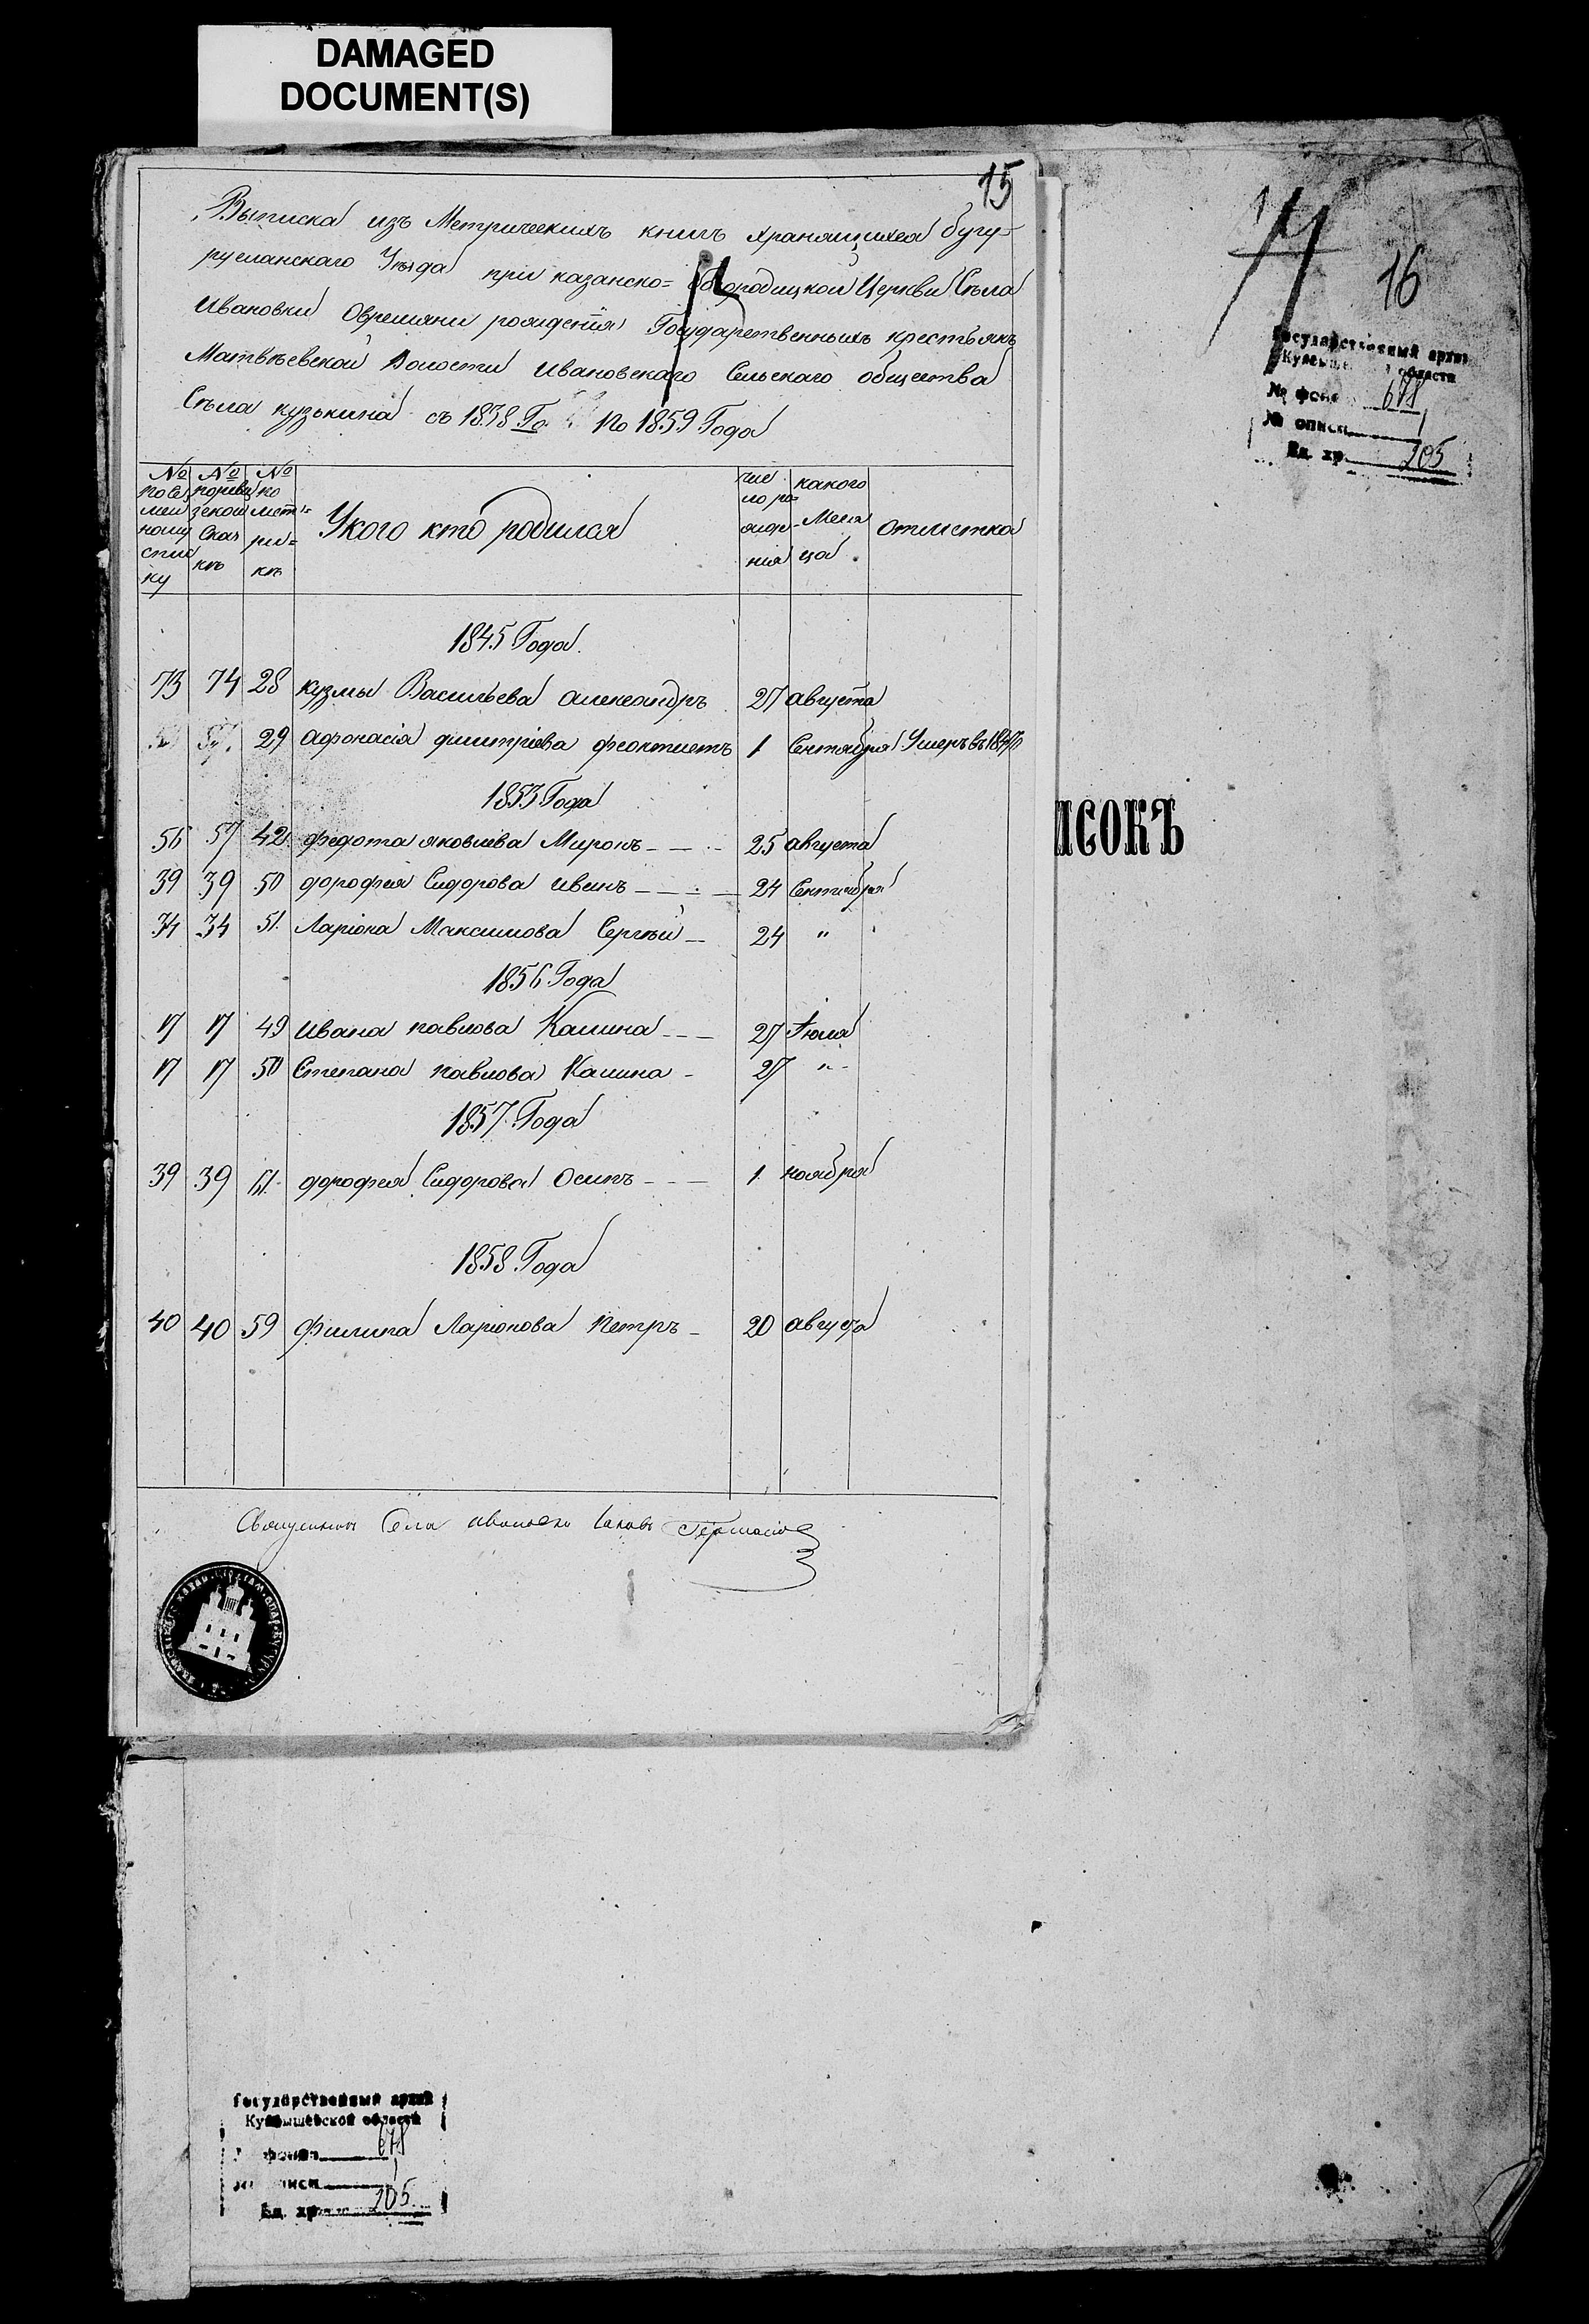 DAMAGED
DOCUMENT(S)
15
Выписка изъ Метрическихъ книгъ хранящихся бугу-
русланскаго Уѣзда при казанско= богородицкой Церкви Села
Ивановки Овремяни рождения Государственныхъ крестьянъ
Матвѣевской Волости Ивановскаго Сельскаго общества
Села кузькина съ 1838 Го по 1859 Года
№ посемейному списку
№ поревизской Сказкѣ
№ по метрикѣ
Укого кто родился
число рождения
какого Месяца
отметка
1845 Года.
73 74 28 кузмы Васильева александръ 27 августа
29 афонасія дмитріева феоктистъ 1 Сентября Умеръ въ
1853 Года
56 57 42 федота яковлева Миронъ 25 августа
39 39 50 дорофея Сидорова 24 Сентября
34 34 51. Ларіона Максимова Сергѣй 24 "
1856 Года
17 17 49 ивана павлова Калина 27 Июля
17 17 50 Степана павлова Калина 27 "
1857 Года
39 39 дорофея Сидорова Осипъ 1 ноября
1858 Года
40 40 59 филипа Ларионова петръ 20 августа
Села
16
Государственный архив
Куйбышевской области
№ фонда 678
№ описи 1
Ед. хр. 205
ИСОКЪ
Государственный архив
Куйбышевской области
фонда 678
описи 1
Ед. хр. 205